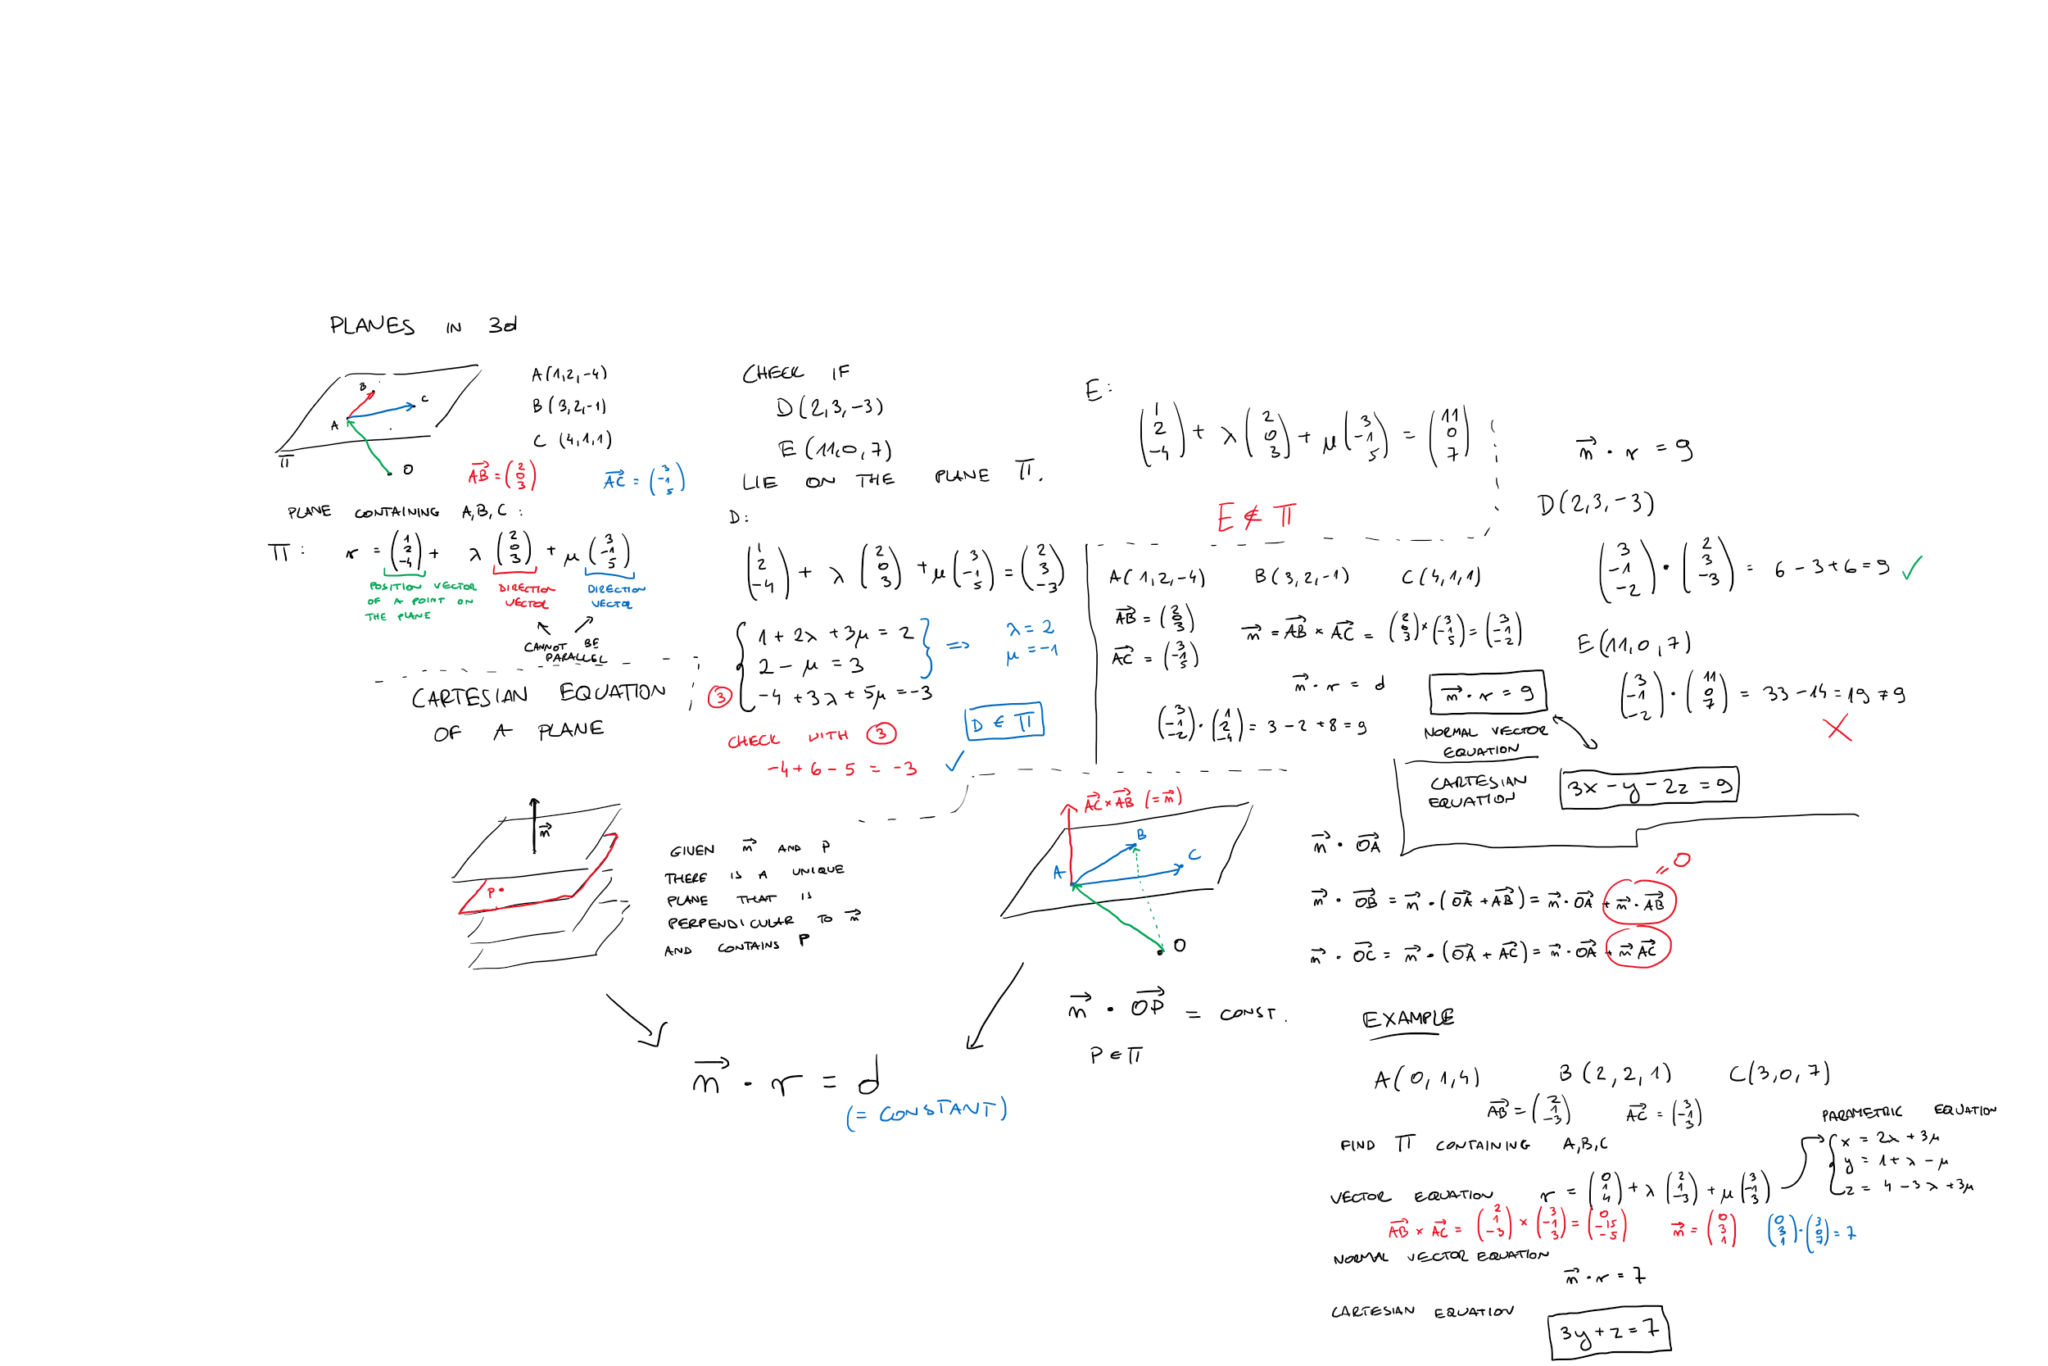 PLANES IN 3d
B
C
A
O
π
A(1,2,-4)
B(3,2,-1)
C (4,1,1)
AB→ = (2 0 3)
AC→ = (3 -1 5)
PLANE CONTAINING A,B,C :
π : r = (1 2 -4) + λ (2 0 3) + μ (3 -1 5)
POSITION VECTOR OF A POINT ON THE PLANE
DIRECTION VECTOR
DIRECTION VECTOR
CANNOT BE PARALLEL
CARTESIAN EQUATION
OF A PLANE
CHECK IF
D(2,3,-3)
E(11,0,7)
LIE ON THE PLANE π.
D:
(1 2 -4) + λ (2 0 3) + μ (3 -1 5) = (2 3 -3)
1 + 2λ + 3μ = 2
2 - μ = 3
③ -4 + 3λ + 5μ = -3
=> λ = 2
μ = -1
CHECK WITH ③
-4 + 6 - 5 = -3 ✓
D ∈ π
E:
(1 2 -4) + λ (2 0 3) + μ (3 -1 5) = (11 0 7)
E ∉ π
A(1,2,-4) B(3,2,-1) C(4,1,1)
AB→ = (2 0 3)
AC→ = (3 -1 5)
n→ = AB→ × AC→ = (2 0 3) × (3 -1 5) = (3 -1 -2)
n→ · r = d
(3 -1 -2) · (1 2 -4) = 3 - 2 + 8 = 9
n→ · r = 9
NORMAL VECTOR
EQUATION
CARTESIAN
EQUATION
3x - y - 2z = 9
n→ · r = 9
D(2,3,-3)
(3 -1 -2) · (2 3 -3) = 6 - 3 + 6 = 9 ✓
E(11,0,7)
(3 -1 -2) · (11 0 7) = 33 - 14 = 19 ≠ 9
X
n→
P
GIVEN n→ AND P
THERE IS A UNIQUE
PLANE THAT IS
PERPENDICULAR TO n→
AND CONTAINS P
AC→ × AB→ (= n→)
B
C
A
O
n→ · OP→ = CONST.
P ∈ π
n→ · r = d
(= CONSTANT)
n→ · OA→
n→ · OB→ = n→ · (OA→ + AB→) = n→ · OA→ + n→ · AB→
= 0
n→ · OC→ = n→ · (OA→ + AC→) = n→ · OA→ + n→ AC→
EXAMPLE
A(0,1,4) B(2,2,1) C(3,0,7)
AB→ = (2 1 -3) AC→ = (3 -1 3)
FIND π CONTAINING A,B,C
PARAMETRIC EQUATION
x = 2λ + 3μ
y = 1 + λ - μ
z = 4 - 3λ + 3μ
VECTOR EQUATION r = (0 1 4) + λ (2 1 -3) + μ (3 -1 3)
AB→ × AC→ = (2 1 -3) × (3 -1 3) = (0 -15 -5) n→ = (0 3 1) (0 3 1) · (3 0 7) = 7
NORMAL VECTOR EQUATION
n→ · r = 7
CARTESIAN EQUATION
3y + z = 7